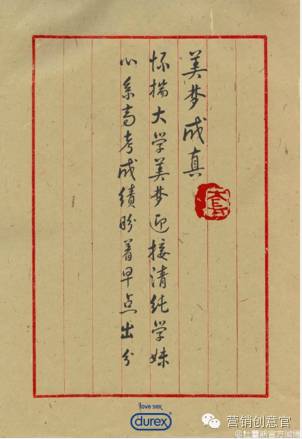 美梦成真
怀揣大学美梦迎接清纯学妹
心系高考成绩盼着早点出分
love sex
durex
营销创意官